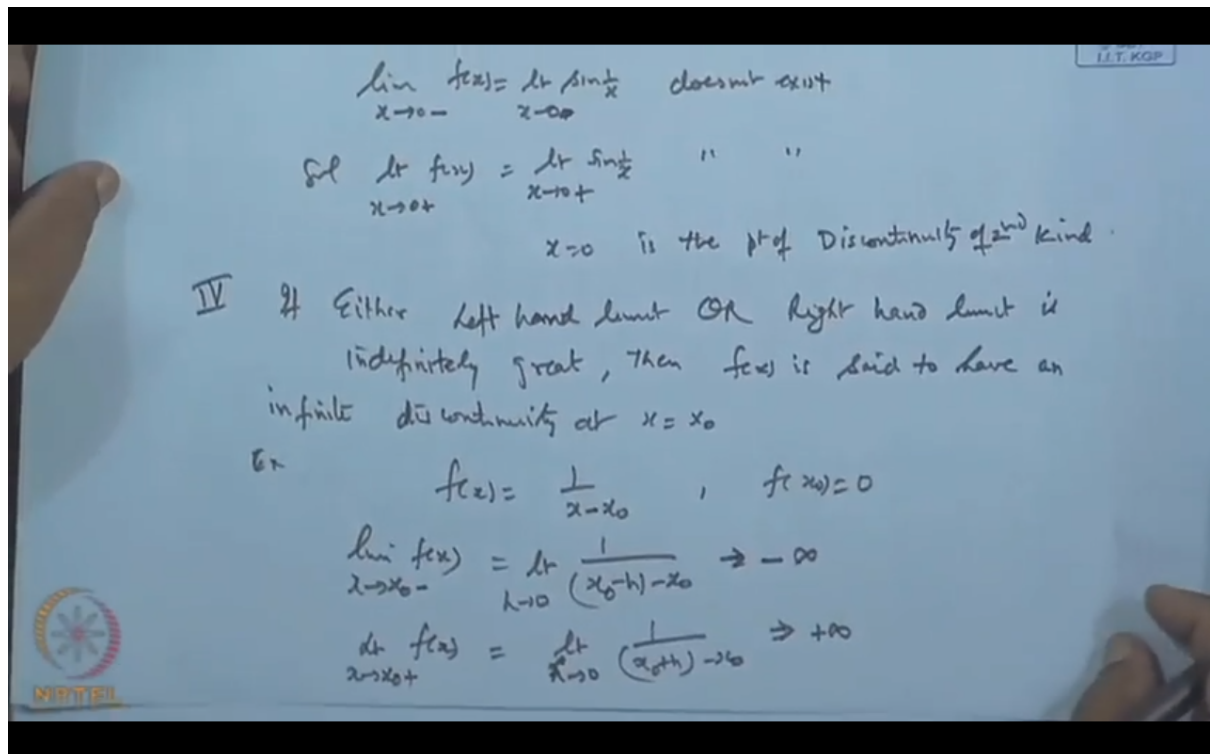 I.I.T. KGP
lim f(x) = lt sin 1/x doesnt exist
x→0- x→0-
lt f(x) = lt sin 1/x " "
x→0+ x→0+
x=0 is the pt of Discontinuity of 2nd Kind.
IV If Either Left hand limit OR Right hand limit is
indefinitely great, then f(x) is said to have an
infinite discontinuity at x = x₀
Ex
f(x) = 1/(x-x₀) , f(x₀)=0
lim f(x) = lt 1/((x₀-h)-x₀) → -∞
x→x₀- h→0
lt f(x) = lt 1/((x₀+h)-x₀) ⇒ +∞
x→x₀+ h→0
NPTEL